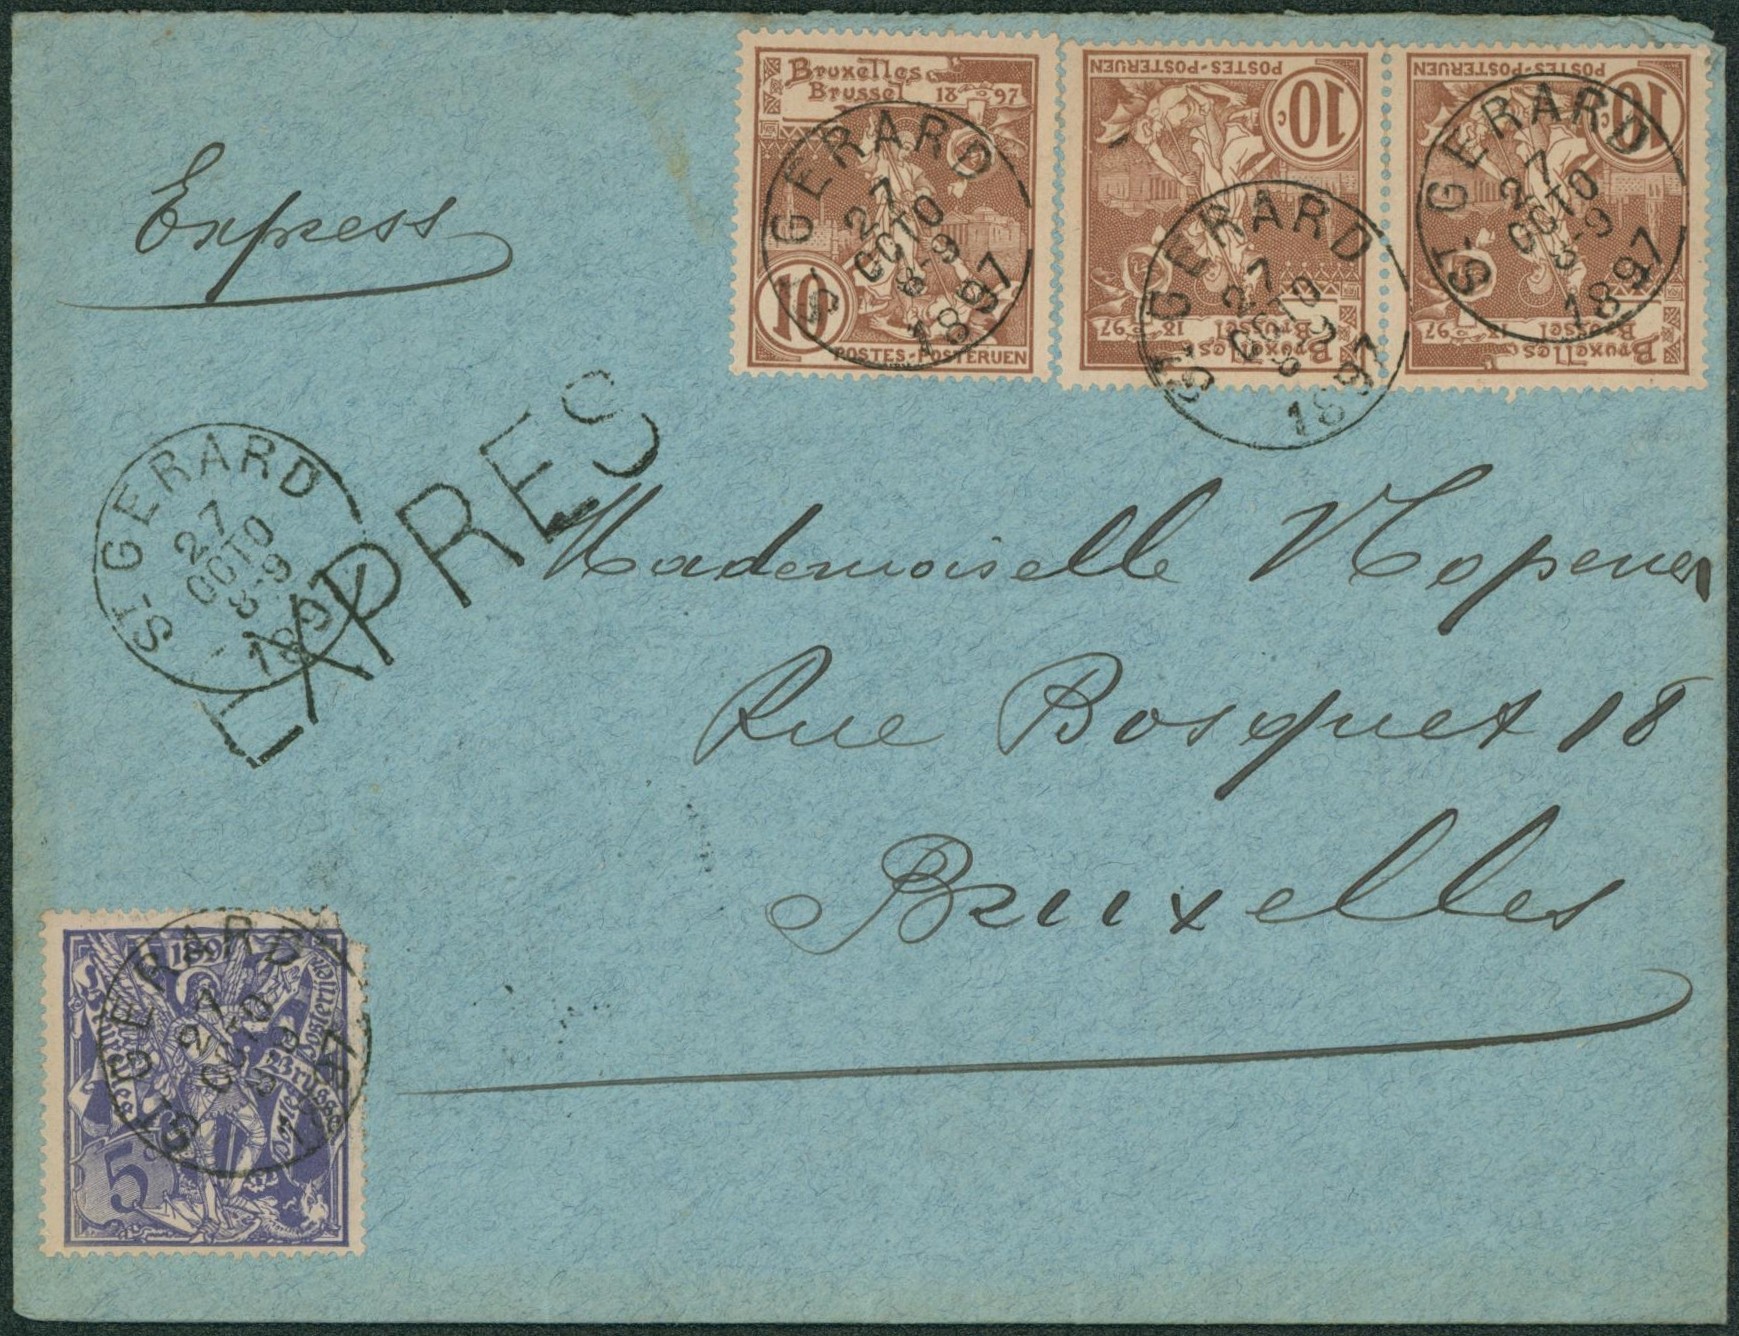 Bruxelles
Brussel 1897
10
POSTES-POSTERIJEN
10c
POSTES-POSTERIJEN
Bruxelles
Brussel 1897
10c
POSTES-POSTERIJEN
Bruxelles
Brussel 1897
ST. GERARD
27
OCTO
8-9
1897
ST. GERARD
27
OCTO
8-9
1897
ST. GERARD
27
OCTO
8-9
1897
Express
ST. GERARD
27
OCTO
8-9
1897
EXPRES
Mademoiselle
Rue Bosquet 18
Bruxelles
1897
Brussel
5c
ST. GERARD
27
OCTO